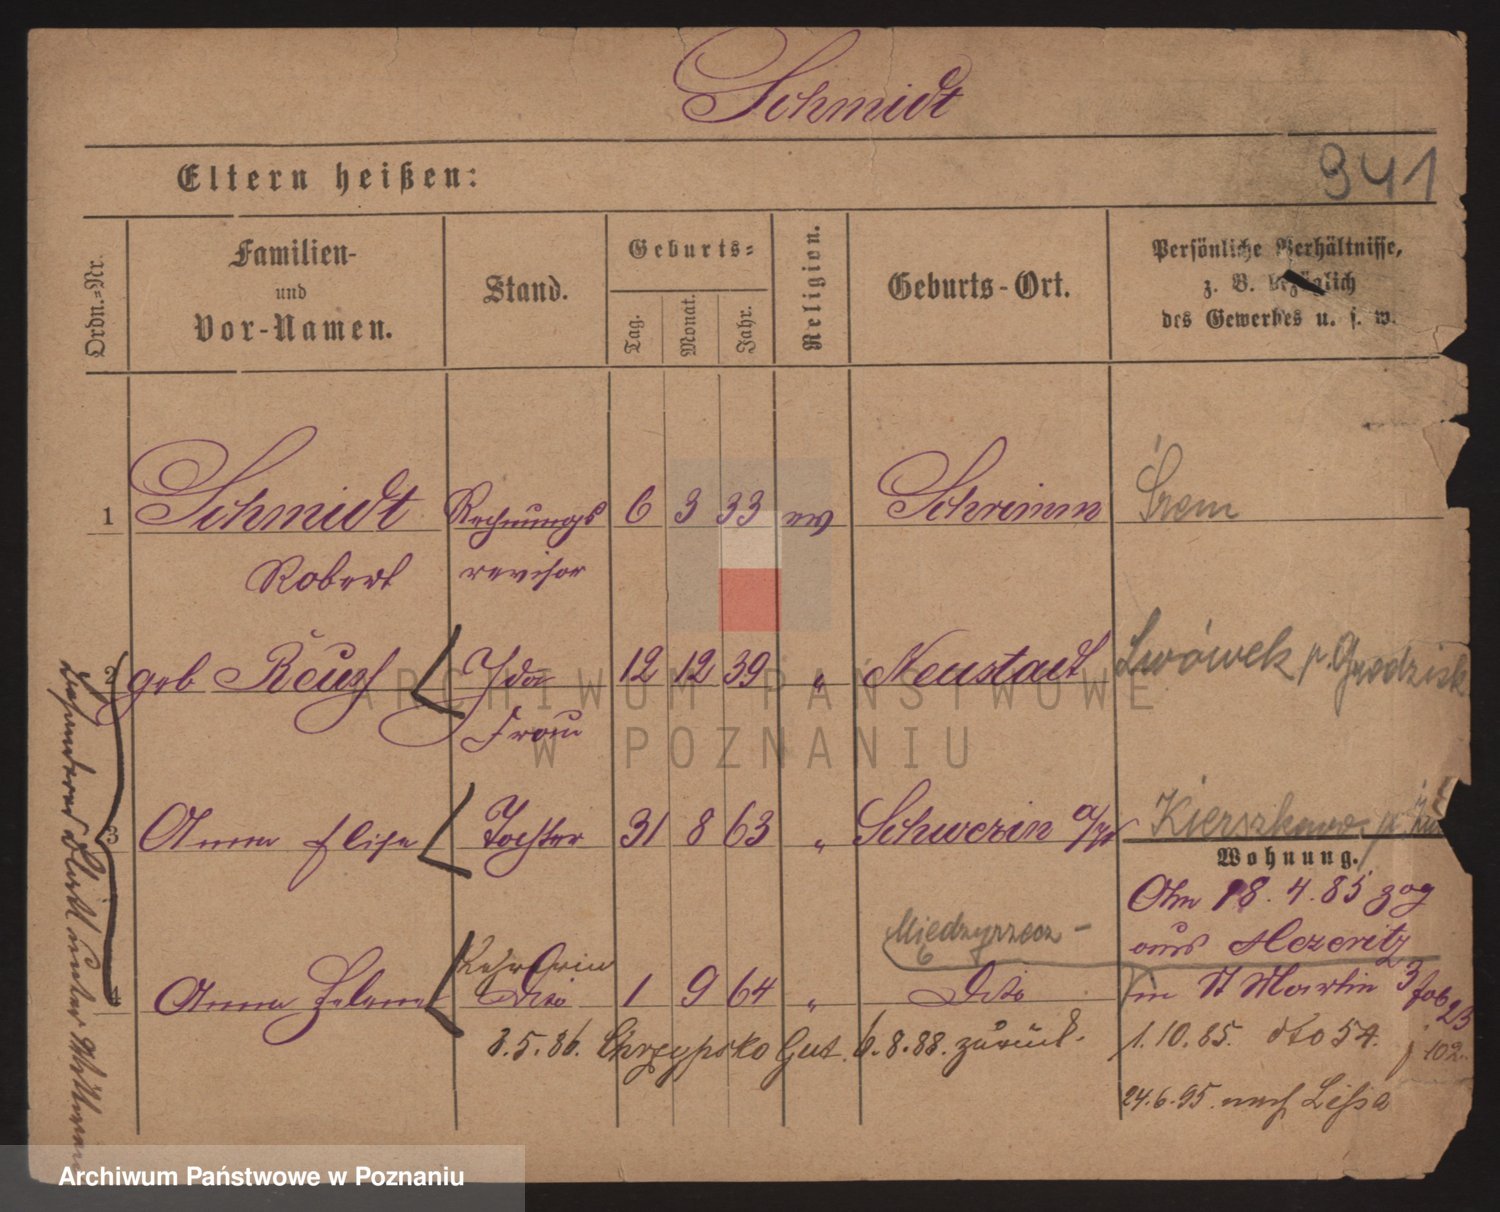 Schmidt
Eltern heißen:
941
Ordn.-Nr.
Familien-
und
Vor-Namen.
Stand.
Geburts-
Tag.
Monat.
Jahr.
Religion.
Geburts-Ort.
Persönliche Verhältnisse,
z. B. bezüglich
des Gewerbes u. s. w.
1 Schmidt Rechnungs 6 3 33 ev Schrimm Śrem
Robert revisor
2 geb Ida 12 12 39 " Neustadt Lwówek p. Grodzisk
Frau
3 Anna Elise Tochter 31 8 63 " Schwerin a/W Kierszkowo p.
Wohnung.
Am 18.4.85 zog
Międzyrzecz -
aus Mezeritz
Lehrerin
4 Anna Helene Dito 1 9 64 " Dito in St Martin 23
3.5.86. Chrzypsko Gut. 6.8.88. zurück. 1.10.85. dto 54. 102.
24.6.95. nach Lissa
ARCHIWUM PAŃSTWOWE
W POZNANIU
Archiwum Państwowe w Poznaniu